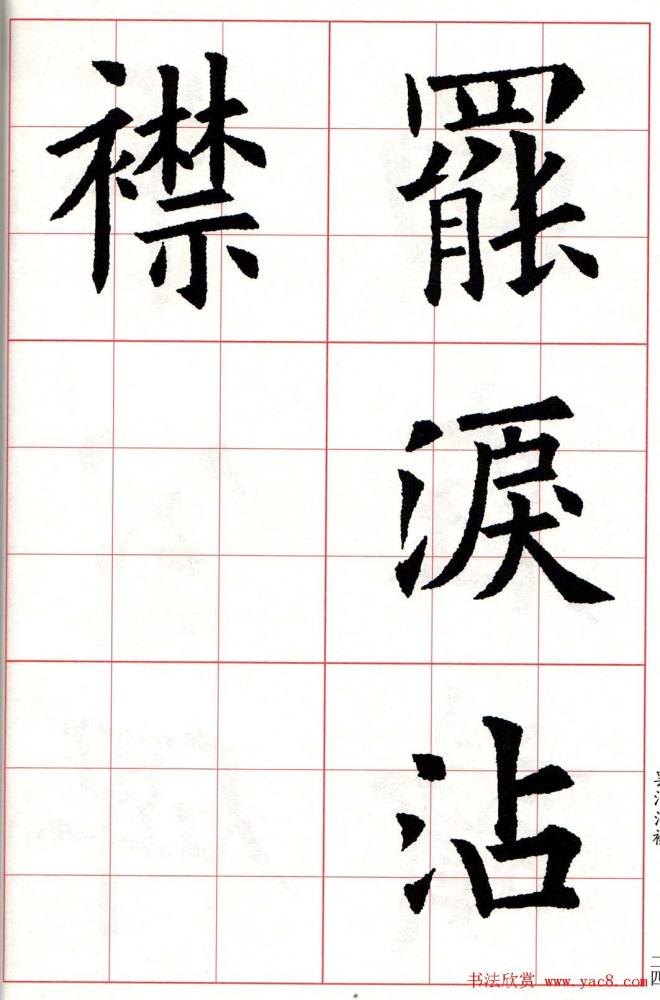 罷淚沾
襟
二四
书法欣赏 www.yac8.com